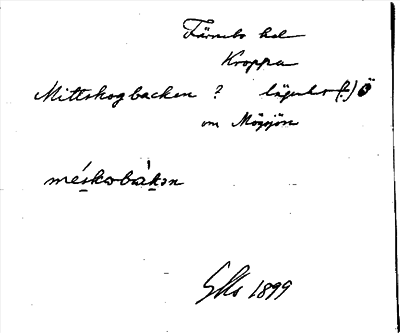 Färnebo hd
Kroppa
Mittskogbacken ? lägenhet (?) Ö
om Mögsjön
méskobàkən
1899